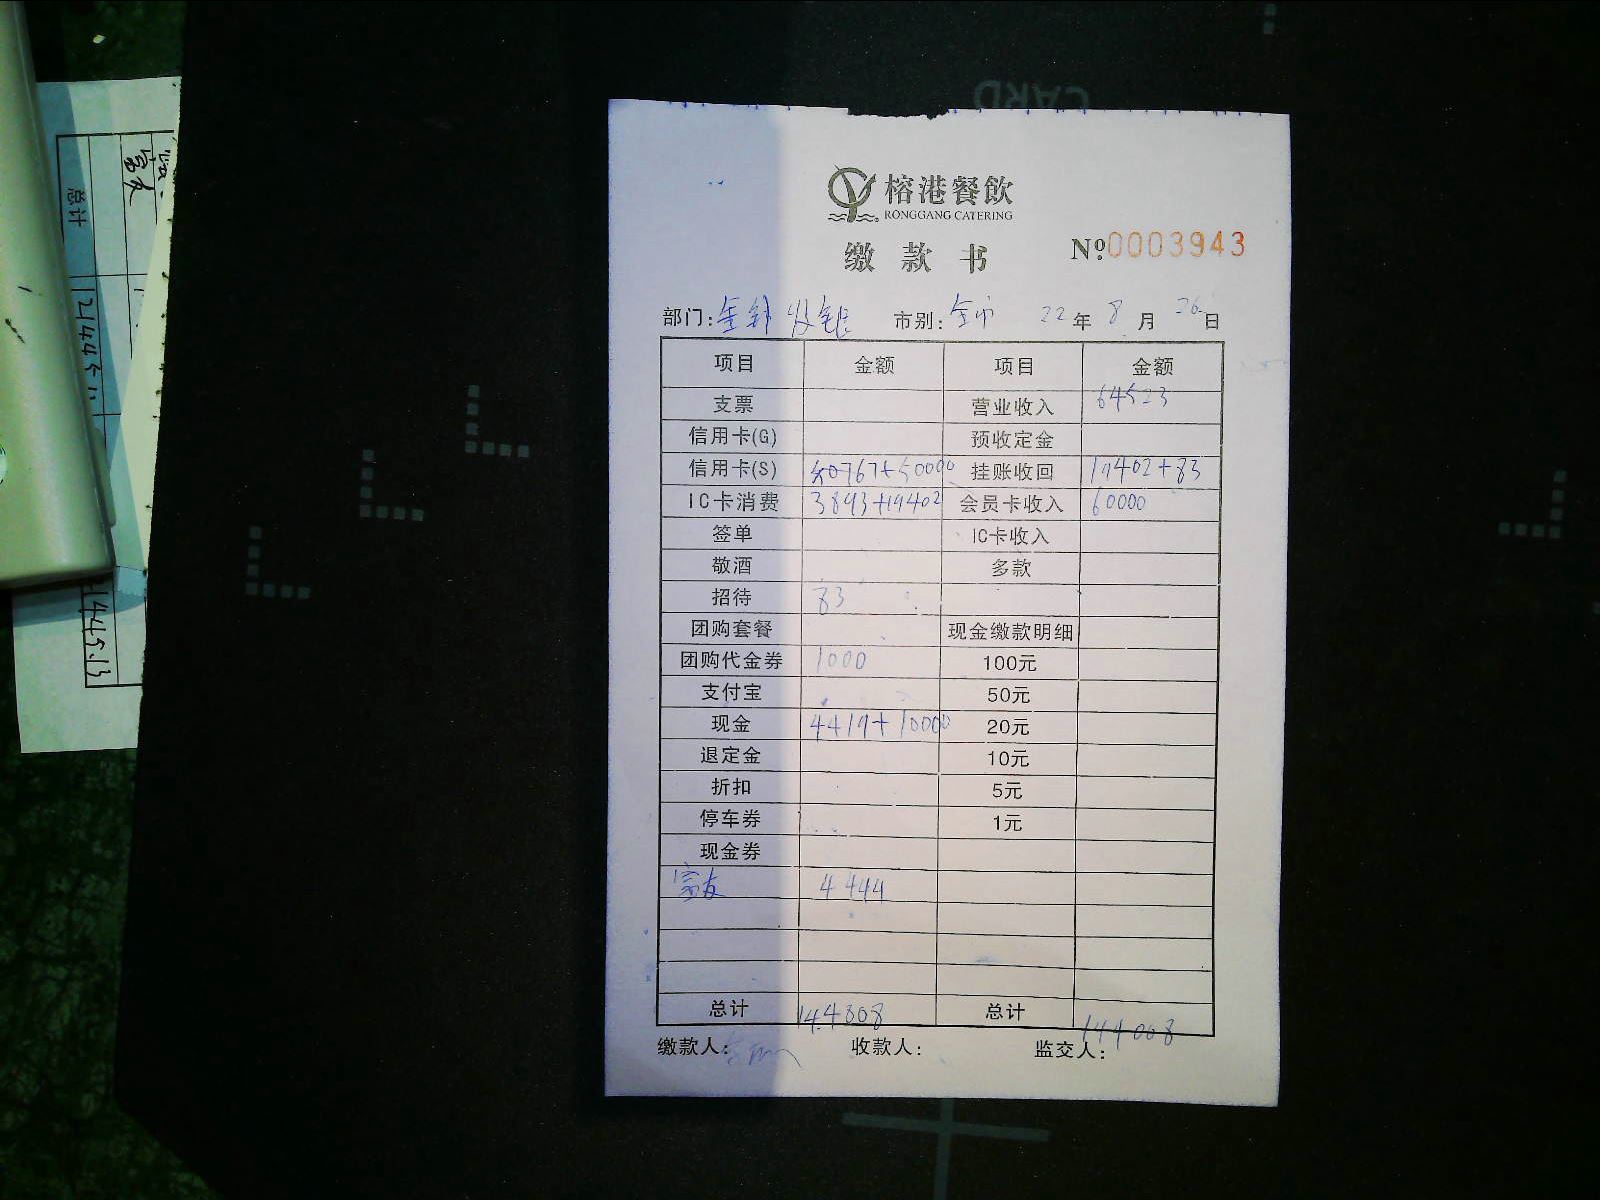 CARD
榕港餐飲
RONGGANG CATERING
缴款书 Nº:0003943
部门: 市别:全市 22年8月26日
项目 金额 项目 金额
支票 营业收入 64523
信用卡(G) 预收定金
信用卡(S) 50767+50000 挂账收回 19402+83
IC卡消费 3893+19402 会员卡收入 60000
签单 IC卡收入
敬酒 多款
招待 83
团购套餐 现金缴款明细
团购代金券 1000 100元
支付宝 50元
现金 4419+10000 20元
退定金 10元
折扣 5元
停车券 1元
现金券
4444
总计 144008 总计 144008
缴款人: 收款人: 监交人:
总计